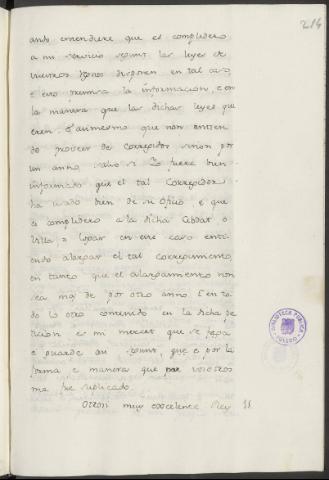 214
ando entendiere que es complidero
a mi servicio segunt las leyes de
nuestros Regnos disponen en tal caso
e esto premira la informacion, e en
la manera que las dichas leyes qui
eren. E asimesmo que non entien
do proveer de corregidor sinon por
un anno, salvo si Yo fuere bien
informado que el tal Corregidor
ha usado bien de su Oficio, e que
es complidero a la dicha Cibdat o
Villa o logar en este caso enti
endo alargar el tal corregimiento,
en tanto que el alargamiento non
sea mas de por otro anno. E en to
do lo otro contenido en la dicha pe
ticion es mi mercet que se faga
e guarde segunt, que e por la
forma e manera que por vosotros
me fue suplicado.
Otrosi muy excelente Rey
BIBLIOTECA PUBLICA
TOLEDO